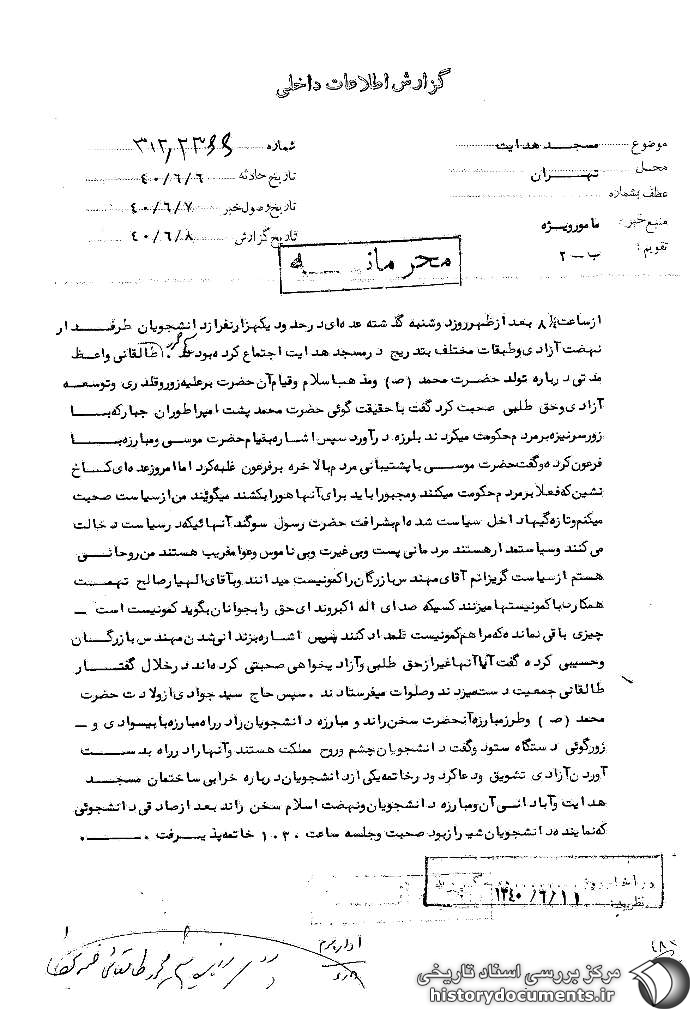 گزارش اطلاعات داخلی
موضوع مسجد هدایت
محل تهران
عطف بشماره
منبع خبر: مامورویژه
تقویم: ب - ۲
شماره ۳۱۲/
تاریخ حادثه ۴۰/۶/۶
تاریخ وصول خبر ۴۰/۶/۷
تاریخ گزارش ۴۰/۶/۸
محرمانه
ازساعت ۸ بعد ازظهرروزدوشنبه گذشته عده‌ای درحدود یکهزارنفرازدانشجویان طرفدار
نهضت آزادی وطبقات مختلف بتدریج درمسجد هدایت اجتماع کرده بودند. طالقانی واعظ
مدتی درباره تولد حضرت محمد (ص) ومذهب اسلام وقیام آن حضرت برعلیه زوروقلدری وتوسعه
آزادی وحق طلبی صحبت کرد گفت با حقیقت گوئی حضرت محمد پشت امپراطوران جبارکه با
زورسرنیزه برمردم حکومت میکردند بلرزه درآورد سپس اشاره بقیام حضرت موسی ومبارزه با
فرعون کرده وگفت حضرت موسی با پشتیبانی مردم بالاخره برفرعون غلبه کرد اما امروزعده‌ای کاخ
نشین که فعلا برمردم حکومت میکنند ومجبورا باید برای آنها هورابکشند میگویند من ازسیاست صحبت
میکنم وتازه گیها داخل سیاست شده‌ام بشرافت حضرت رسول سوگند آنهائیکه درسیاست دخالت
می کنند وسیاستمدارهستند مردمانی پست وبی غیرت وبی ناموس وعوامفریب هستند من روحانی
هستم ازسیاست گریزانم آقای مهندس بازرگان راکمونیست میدانند وبه آقای الهیارصالح تهمت
همکاری با کمونیستها میزنند کسیکه صدای اله اکبروندای حق رابجوانان بگوید کمونیست است -
چیزی باقی نمانده که مرا هم کمونیست قلمداد کنند سپس اشاره بزندانی شدن مهندس بازرگان
وحسیبی کرده گفت آیا آنها غیرازحق طلبی وآزادیخواهی صحبتی کرده اند درخلال گفتار
طالقانی جمعیت دست میزدند وصلوات میفرستادند. سپس حاج سید جوادی ازولادت حضرت
محمد (ص) وطرزمبارزه آنحضرت سخن راند و مبارزه دانشجویان رادرراه مبارزه با بیسوادی و -
زورگوئی دستگاه ستود وگفت دانشجویان چشم وروح مملکت هستند وآنهارادرراه بدست
آوردن آزادی تشویق ودعاکرد ودرخاتمه یکی ازدانشجویان درباره خرابی ساختمان مسجد
هدایت وآبادانی آن ومبارزه دانشجویان ونهضت اسلام سخن راند بعد ازصادقی دانشجوئی
که نماینده دانشجویان شیرازبود صحبت وجلسه ساعت ۱۰۳۰ خاتمه پذیرفت.
۱۳۴۰/۶/۱۱
مرکز بررسی اسناد تاریخی
historydocuments.ir